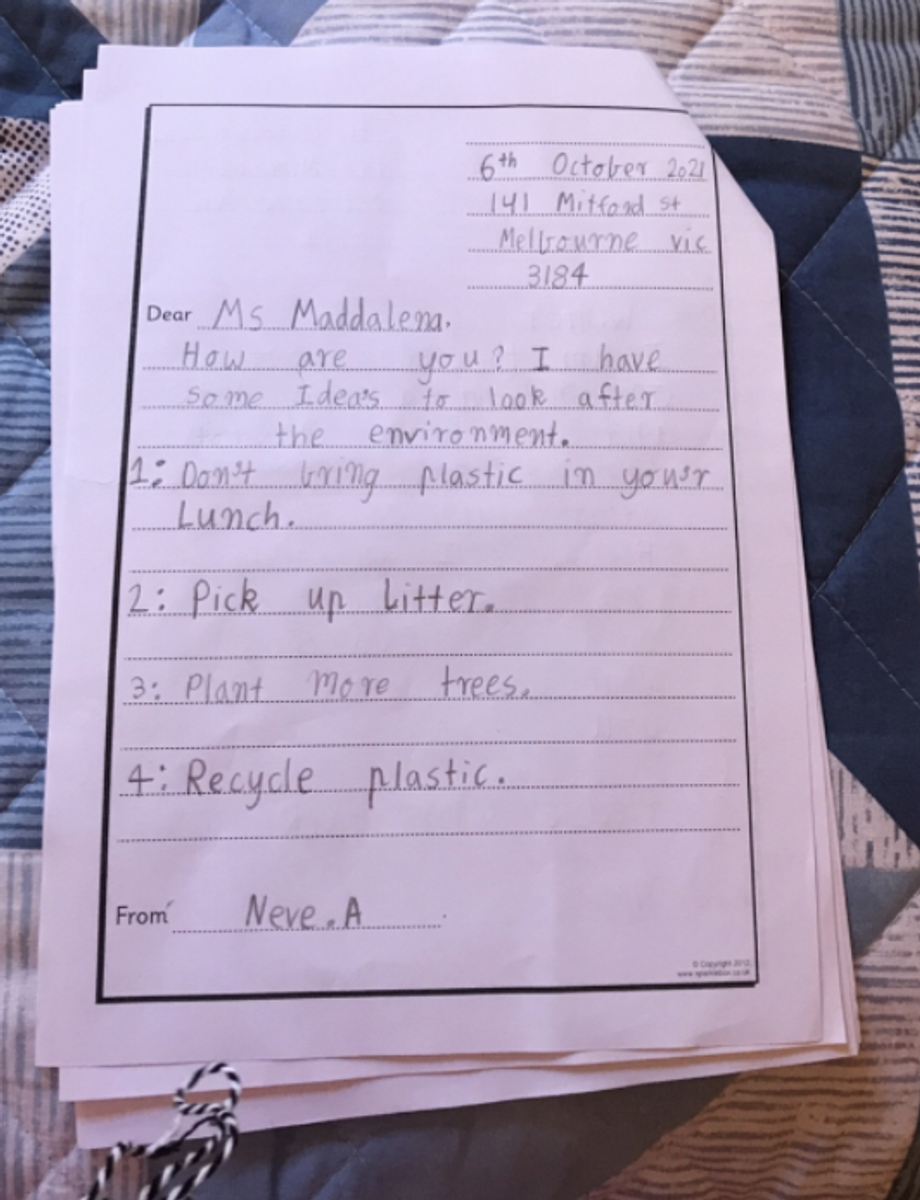 6th October 2021
141 Mitford st
Melbourne vic
3184
Dear Ms Maddalena.
How are you? I have
some Idea's to look after
the environment.
1: Don't bring plastic in you'r
Lunch.
2: Pick up Litter.
3: Plant more trees.
4: Recycle plastic.
From Neve.A
© Copyright 2012,
www.sparklebox.co.uk